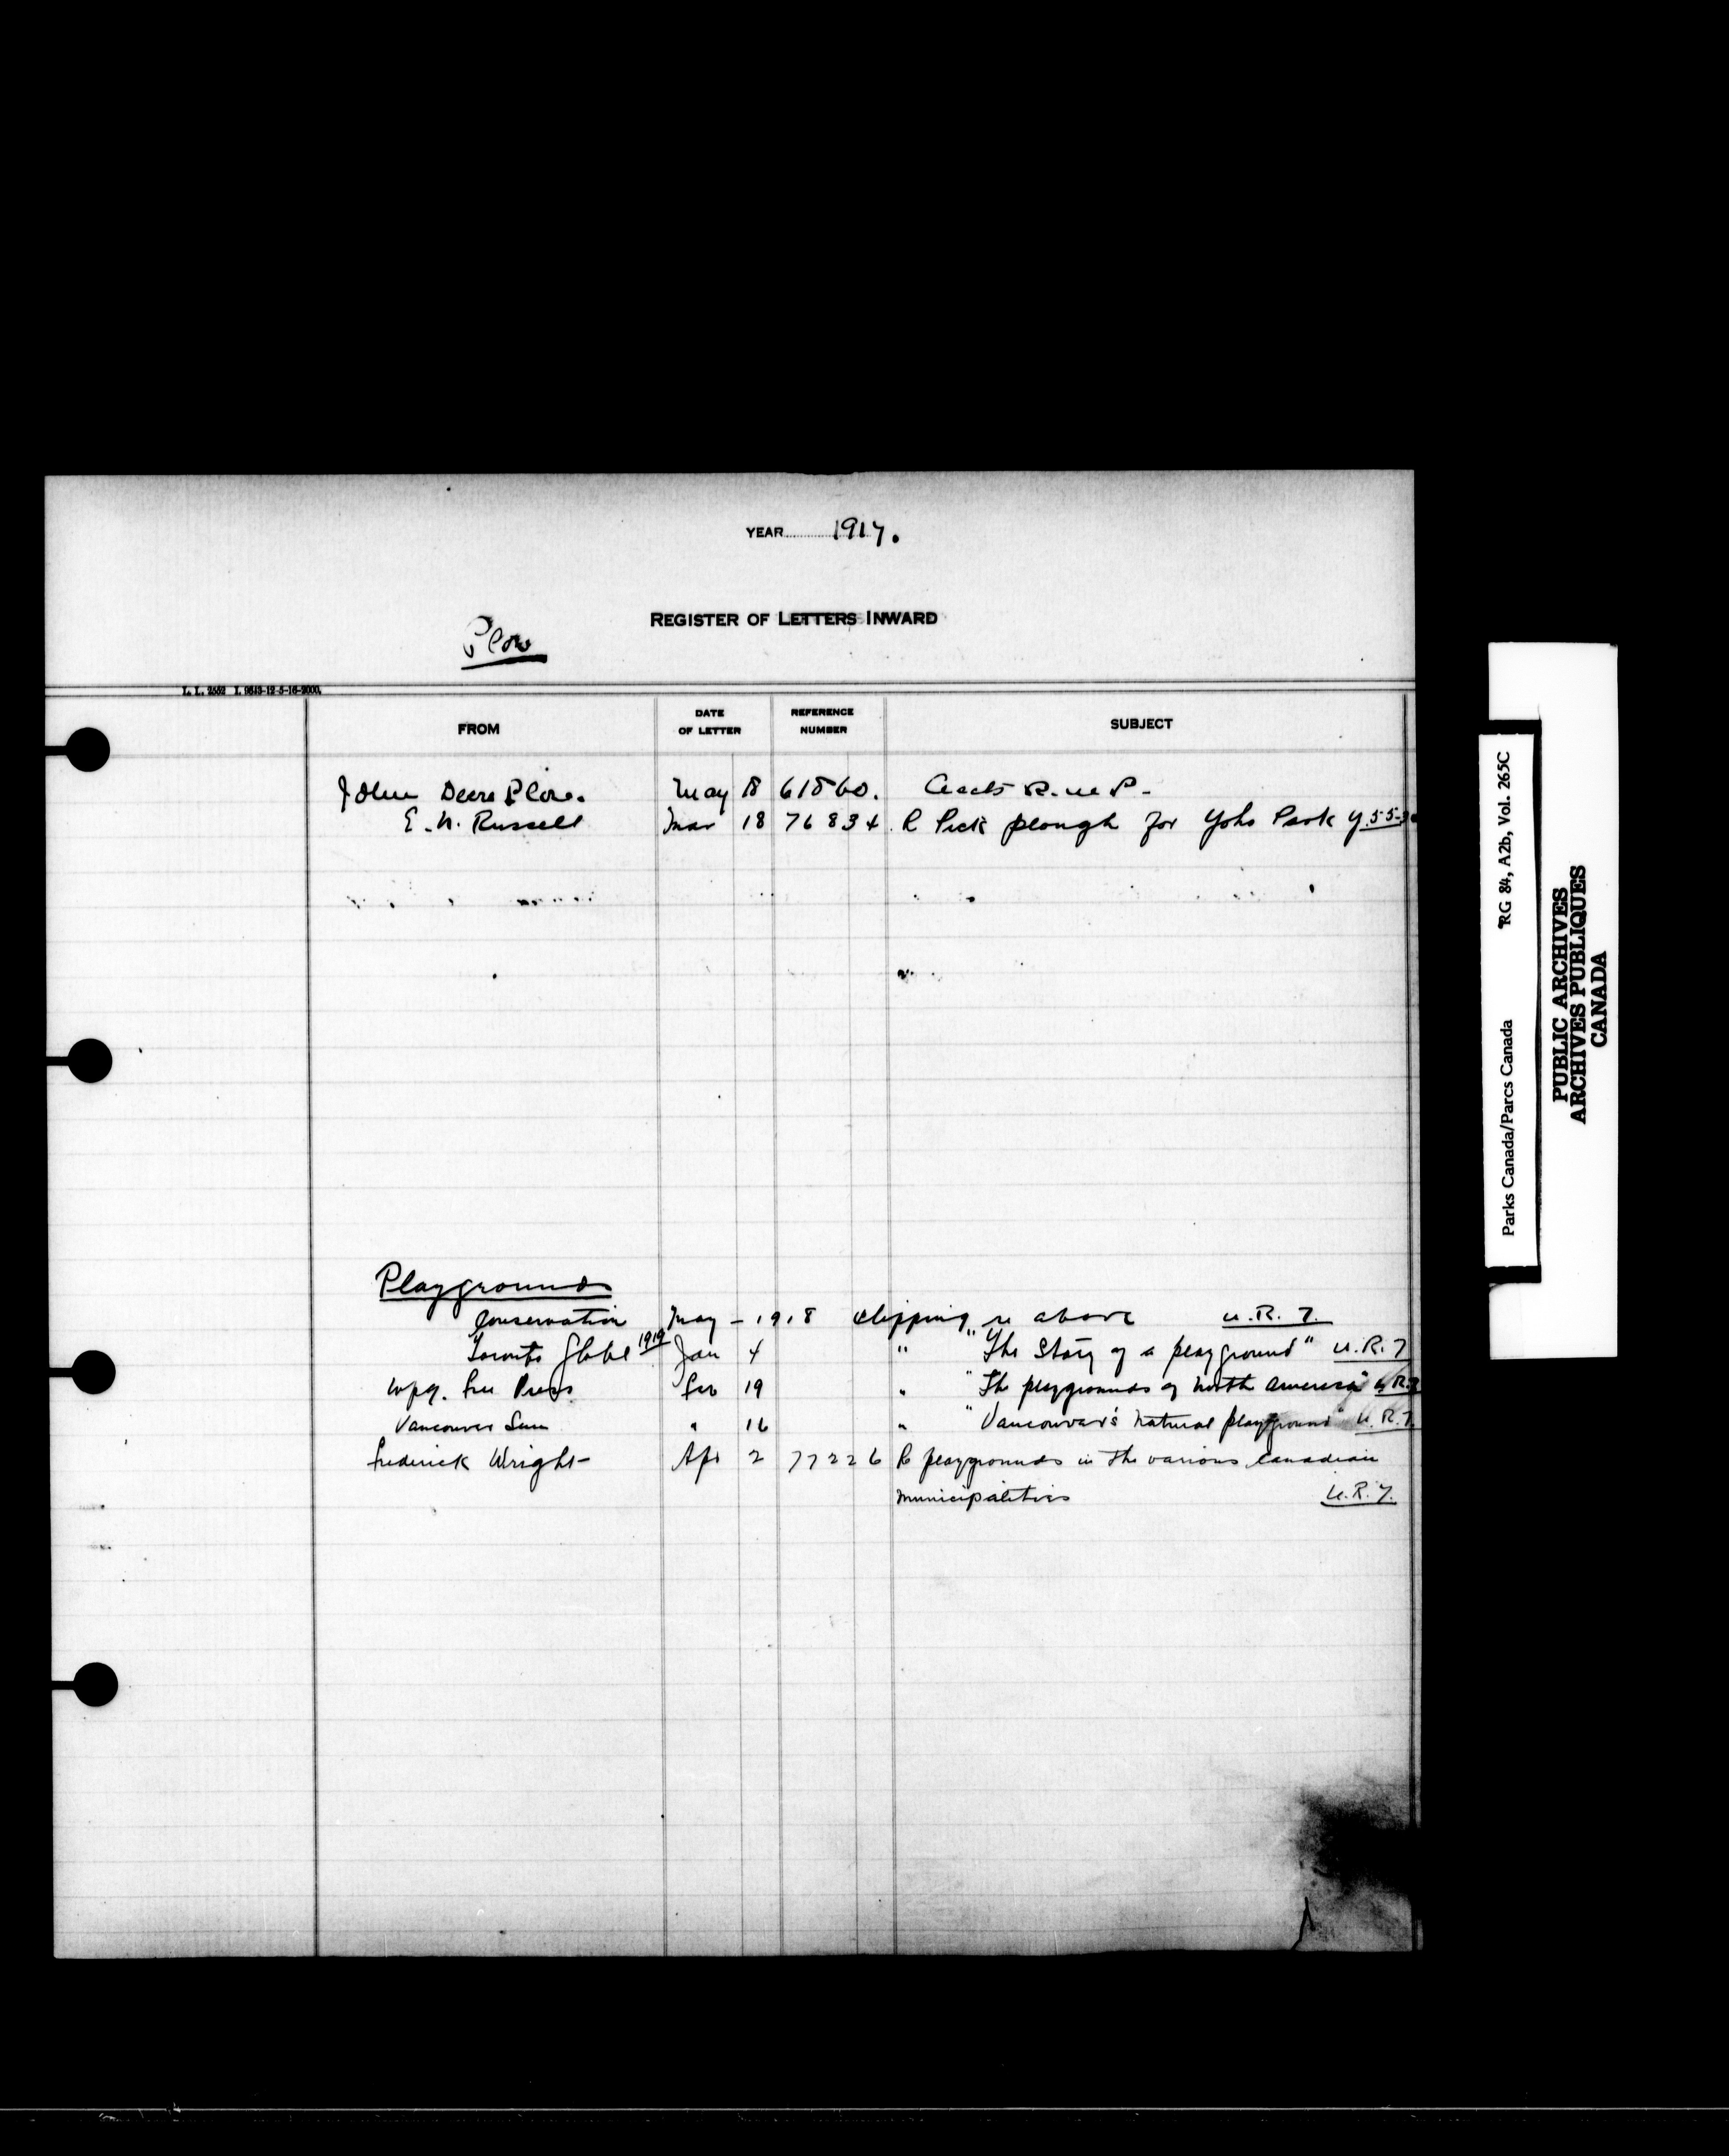 YEAR 1917.
REGISTER OF LETTERS INWARD
Plow
L. L. 2552 I. 9643-12-5-16-2000.
FROM DATE OF LETTER REFERENCE NUMBER SUBJECT
John Deere Plow. May 18 61860. Accts R.M.P.
E. N. Russell Mar 18 76834 R Pick plough for Yoho Park Y.55-
Playgrounds
Conservation May - 1918 Clipping re above U.R.7.
Toronto Globe 1919 Jan 4 " " "The Story of a playground" U.R.7
Wpg. Free Press Feb 19 " "The playgrounds of North America" U.R.7
Vancouver Sun " 16 " "Vancouver's natural playground" U.R.7.
Frederick Wright Apr 2 77226 R playgrounds in the various Canadian
municipalities U.R.7.
Parks Canada/Parcs Canada RG 84, A2b, Vol. 265C
PUBLIC ARCHIVES
ARCHIVES PUBLIQUES
CANADA